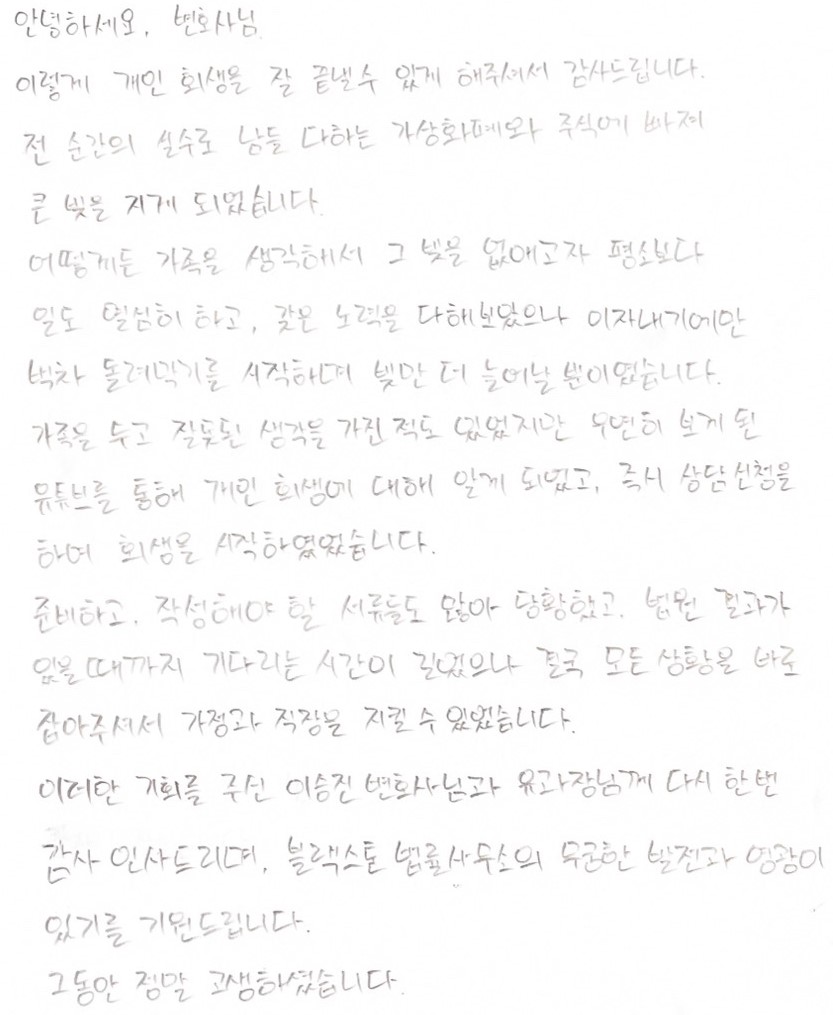 안녕하세요, 변호사님.
이렇게 개인 회생을 잘 끝낼수 있게 해주셔서 감사드립니다.
전 순간의 실수로 남들 다하는 가상화폐와 주식에 빠져
큰 빚을 지게 되었습니다.
어떻게든 가족을 생각해서 그 빚을 없애고자 평소보다
일도 열심히 하고, 갖은 노력을 다해보았으나 이자내기에만
벅차 돌려막기를 시작하며 빚만 더 늘어날 뿐이였습니다.
가족을 두고 잘못된 생각을 가진 적도 있었지만 우연히 보게 된
유튜브를 통해 개인 회생에 대해 알게 되었고, 즉시 상담신청을
하여 회생을 시작하였었습니다.
준비하고, 작성해야 할 서류들도 많아 당황했고, 법원 결과가
있을때까지 기다리는 시간이 길었으나 결국 모든 상황을 바로
잡아주셔서 가정과 직장을 지킬 수 있었습니다.
이러한 기회를 주신 이승진 변호사님과 유과장님께 다시 한번
감사 인사드리며, 블랙스톤 법률사무소의 무궁한 발전과 영광이
있기를 기원드립니다.
그동안 정말 고생하셨습니다.